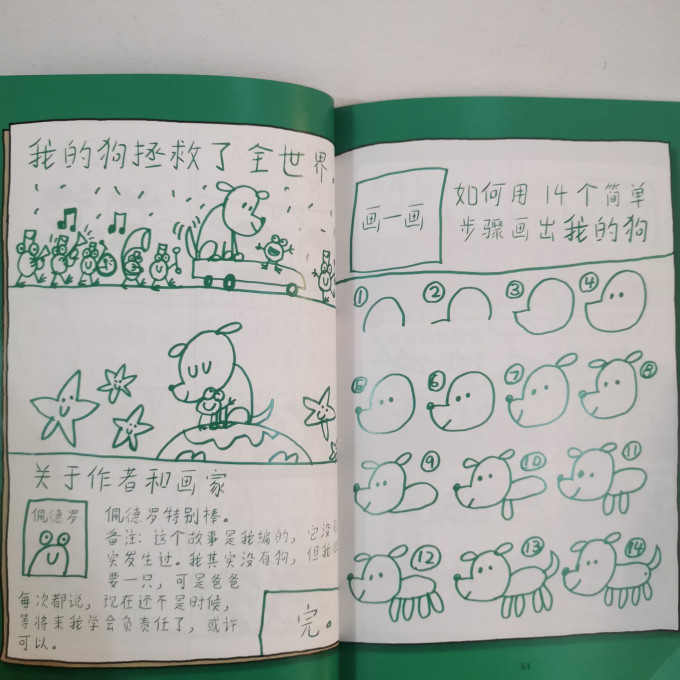 我的狗拯救了全世界。
关于作者和画家
佩德罗
佩德罗特别棒。
备注:这个故事是我编的,它没
实发生过。我其实没有狗,但我
要一只,可是爸爸
每次都说,现在还不是时候,
等将来我学会负责任了,或许
可以。
完。
画一画
如何用14个简单
步骤画出我的狗
①
②
③
④
⑤
⑥
⑦
⑧
⑨
⑩
⑪
⑫
⑬
⑭
53